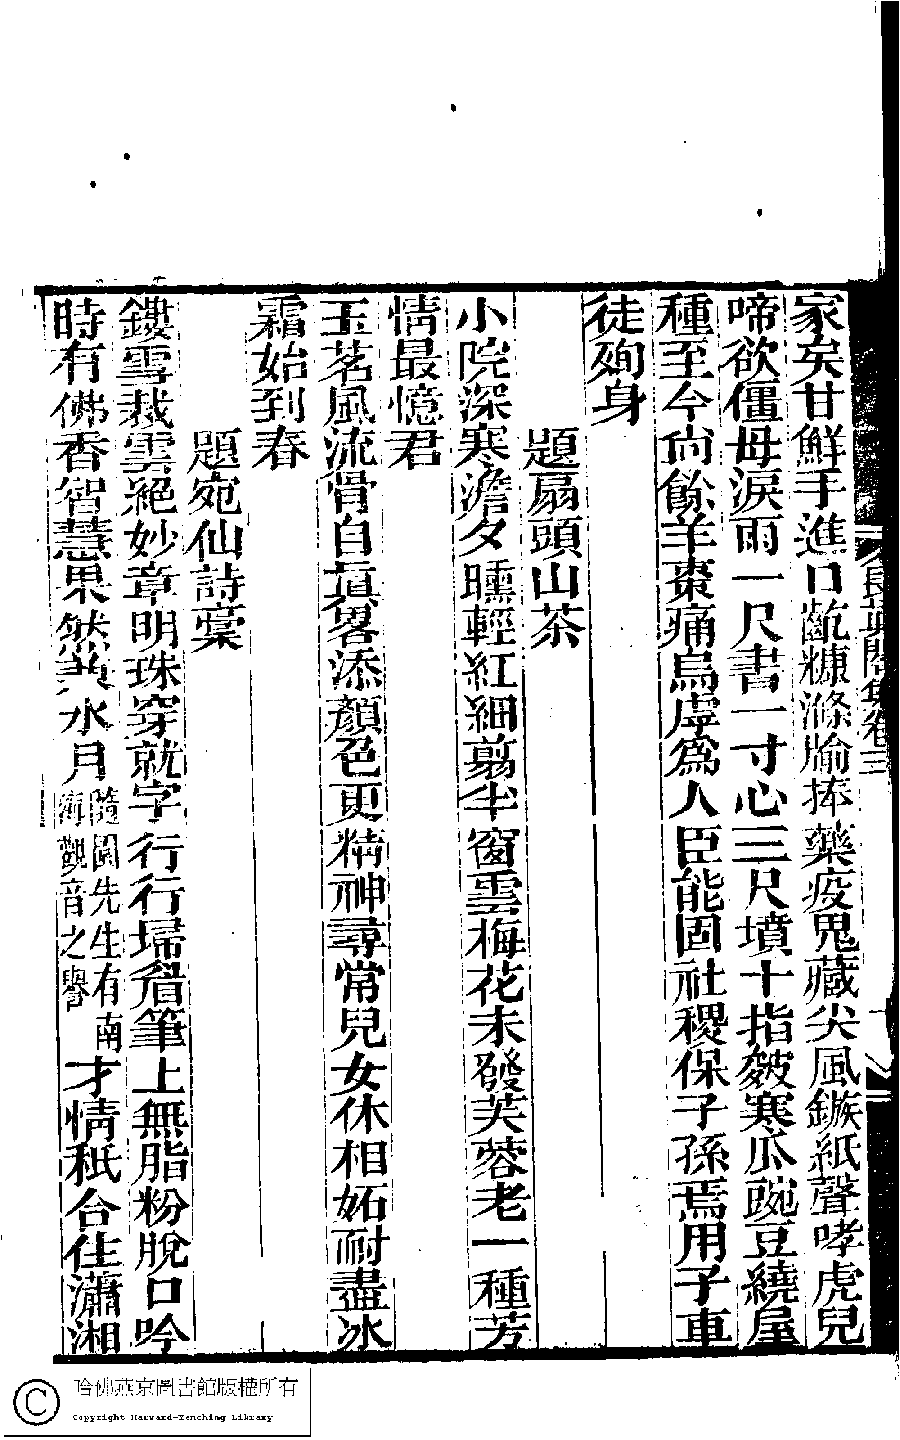 家矣甘鮮手進口齕糠滌牏捧藥疫鬼藏尖風鏃紙聲哮虎兒
啼欲僵母淚雨一尺書一寸心三尺墳十指皴寒瓜豌豆繞屋
種至今尙餘羊棗痛烏虖爲人臣能固社稷保子孫焉用子車
徒殉身
題扇頭山茶
小院深寒澹夕曛輕紅細翦半窗雲梅花未發芙蓉老一種芳
情最憶君
玉茗風流骨自眞畧添顏色更精神尋常兒女休相妬耐盡冰
霜始到春
題宛仙詩稾
鏤雪裁雲絕妙章明珠穿就字行行埽眉筆上無脂粉脫口吟
時有佛香智慧果然兼水月隨園先生有南海觀音之譽才情秖合住瀟湘
閣集卷三
哈佛燕京圖書館版權所有
Copyright Harvard-Yenching Library